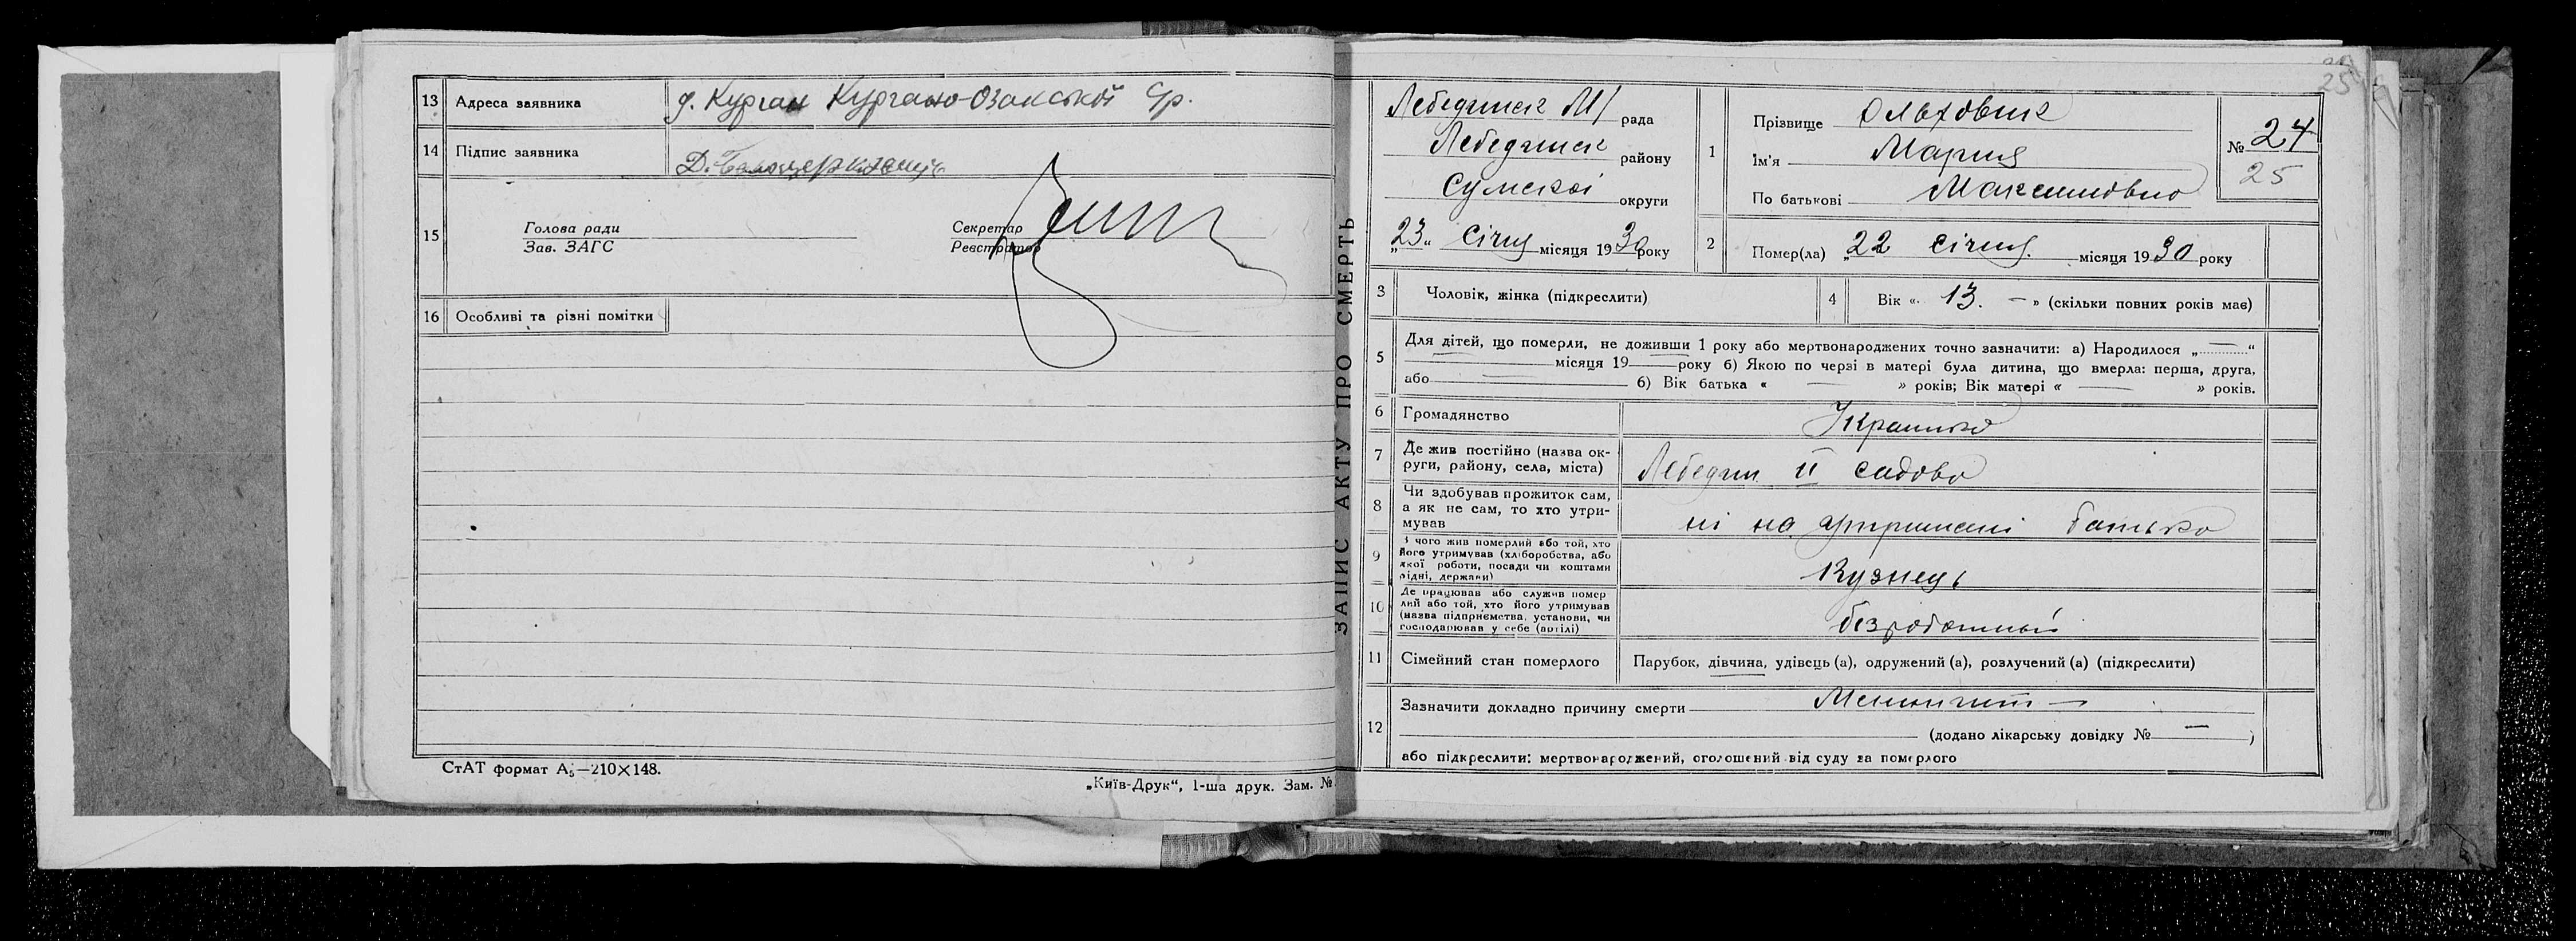 13 Адреса заявника д. Курган Кургано-Озакської Ср.
14 Підпис заявника
15 Голова ради
Зав. ЗАГС
Секретар
Реєстратор
16 Особливі та різні помітки
СтАТ формат А5—210×148.
„Київ-Друк“, 1-ша друк. Зам. №
ЗАПИС АКТУ ПРО СМЕРТЬ
25
Лебединск М/ рада
Лебединск району
Сумскої округи
„23“ Січня місяця 1930 року
1 Прізвище Ольховик
Ім'я Мария
По батькові Максимовна
№ 24
25
2 Помер(ла) „22 Січня. місяця 1930 року
3 Чоловік, жінка (підкреслити)
4 Вік «13. —» (скільки повних років має)
5 Для дітей, що померли, не доживши 1 року або мертвонароджених точно зазначити: а) Народилося „—“
— місяця 19— року б) Якою по черзі в матері була дитина, що вмерла: перша, друга,
або — б) Вік батька « — » років; Вік матері « — » років.
6 Громадянство Украинка
7 Де жив постійно (назва ок-
руги, району, села, міста) Лебедин II садова
8 Чи здобував прожиток сам,
а як не сам, то хто утри-
мував ні на утриманні батька
9 З чого жив померлий або той, хто
його утримував (хліборобства, або
якої роботи, посади чи коштами
рідні, держави) Кузнець
10 Де працював або служив помер
лий або той, хто його утримував
(назва підприємства, установи, чи
господарював у себе (артілі) безработный
11 Сімейний стан померлого Парубок, дівчина, удівець (а), одружений (а), розлучений (а) (підкреслити)
12 Зазначити докладно причину смерти Менингит —
(додано лікарську довідку № — )
або підкреслити: мертвонароджений, оголошений від суду за померлого